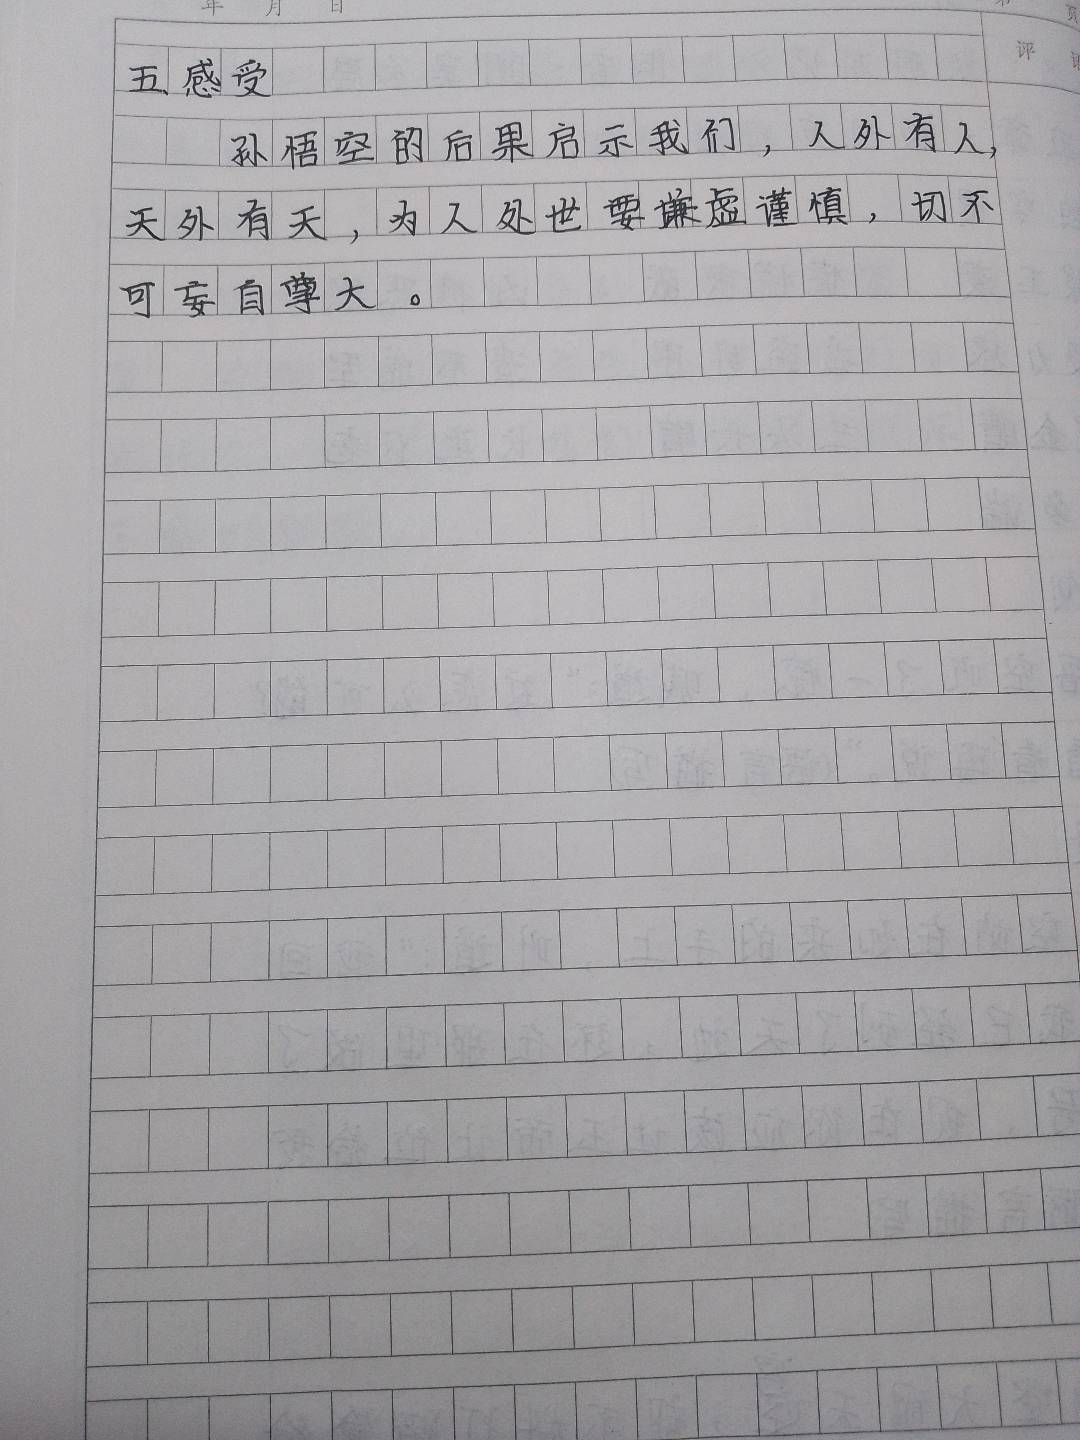 年 月 日
第 页
评 语
五、感受
孙悟空的后果启示我们，人外有人，
天外有天，为人处世要谦虚谨慎，切不
可妄自尊大。